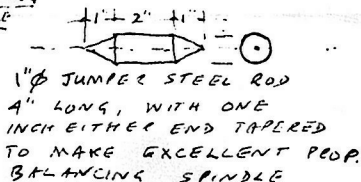 1" 2" 1"
1"Ø JUMPER STEEL ROD
4" LONG, WITH ONE
INCH EITHER END TAPERED
TO MAKE EXCELLENT PROP.
BALANCING SPINDLE